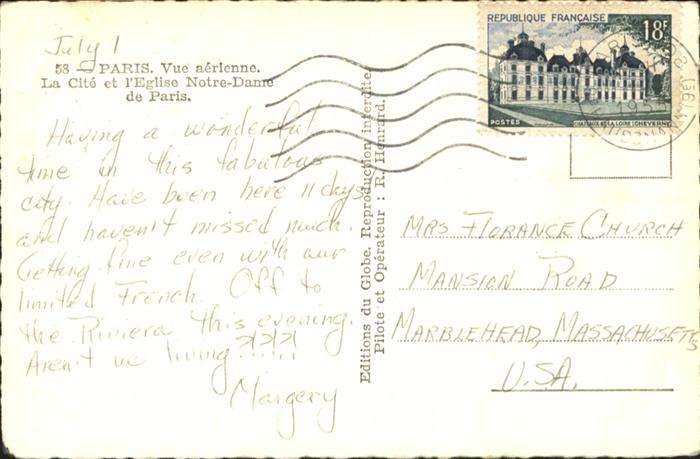 July 1
58 — PARIS. Vue aérienne.
La Cité et l'Eglise Notre-Dame
de Paris.
Having a wonderful
time in this fabulous
city. Have been here 11 days
and haven't missed much.
Getting fine even with our
limited French. Off to
the Riviera this evening.
Aren't we living ???!!...
Margery
Editions du Globe. Reproduction interdite.
Pilote et Opérateur : R. Henrard.
REPUBLIQUE FRANÇAISE
18F
POSTES
CHATEAUX DE LA LOIRE (CHEVERNY)
MRS FLORANCE CHURCH
MANSION ROAD
MARBLEHEAD, MASSACHUSETTS
U.S.A.